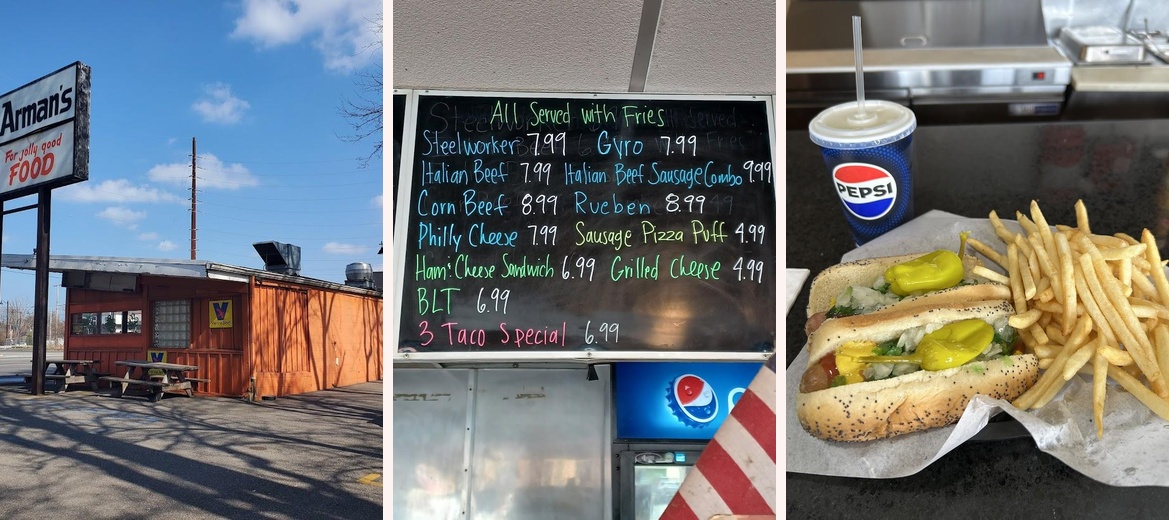 Arman's
For jolly good
FOOD
V
All Served with Fries
Steelworker 7.99 Gyro 7.99
Italian Beef 7.99 Italian Beef Sausage Combo 9.99
Corn Beef 8.99 Rueben 8.99
Philly Cheese 7.99 Sausage Pizza Puff 4.99
Ham & Cheese Sandwich 6.99 Grilled Cheese 4.99
BLT 6.99
3 Taco Special 6.99
PEPSI